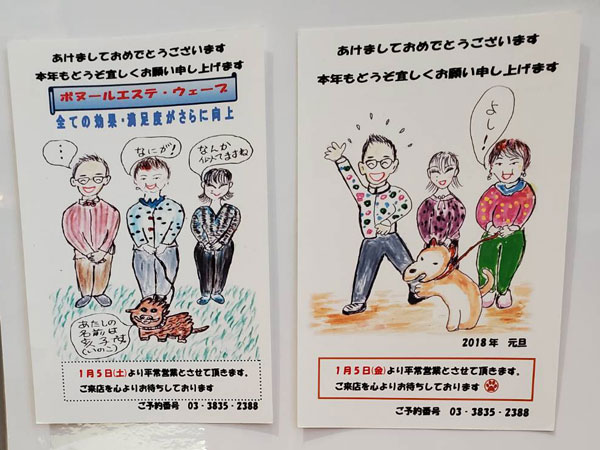 あけましておめでとうございます
本年もどうぞ宜しくお願い申し上げます
ボヌールエステ・ウェーブ
全ての効果・満足度がさらに向上
・・・
なにが!
なんか
似てますね
あたしの
名前は
亥子でェす
(いのこ)
1月5日(土)より平常営業とさせて頂きます。
ご来店を心よりお待ちしております
ご予約番号 03-3835-2388
あけましておめでとうございます
本年もどうぞ宜しくお願い申し上げます
よし!
2018年 元旦
1月5日(金)より平常営業とさせて頂きます。
ご来店を心よりお待ちしております
ご予約番号 03-3835-2388